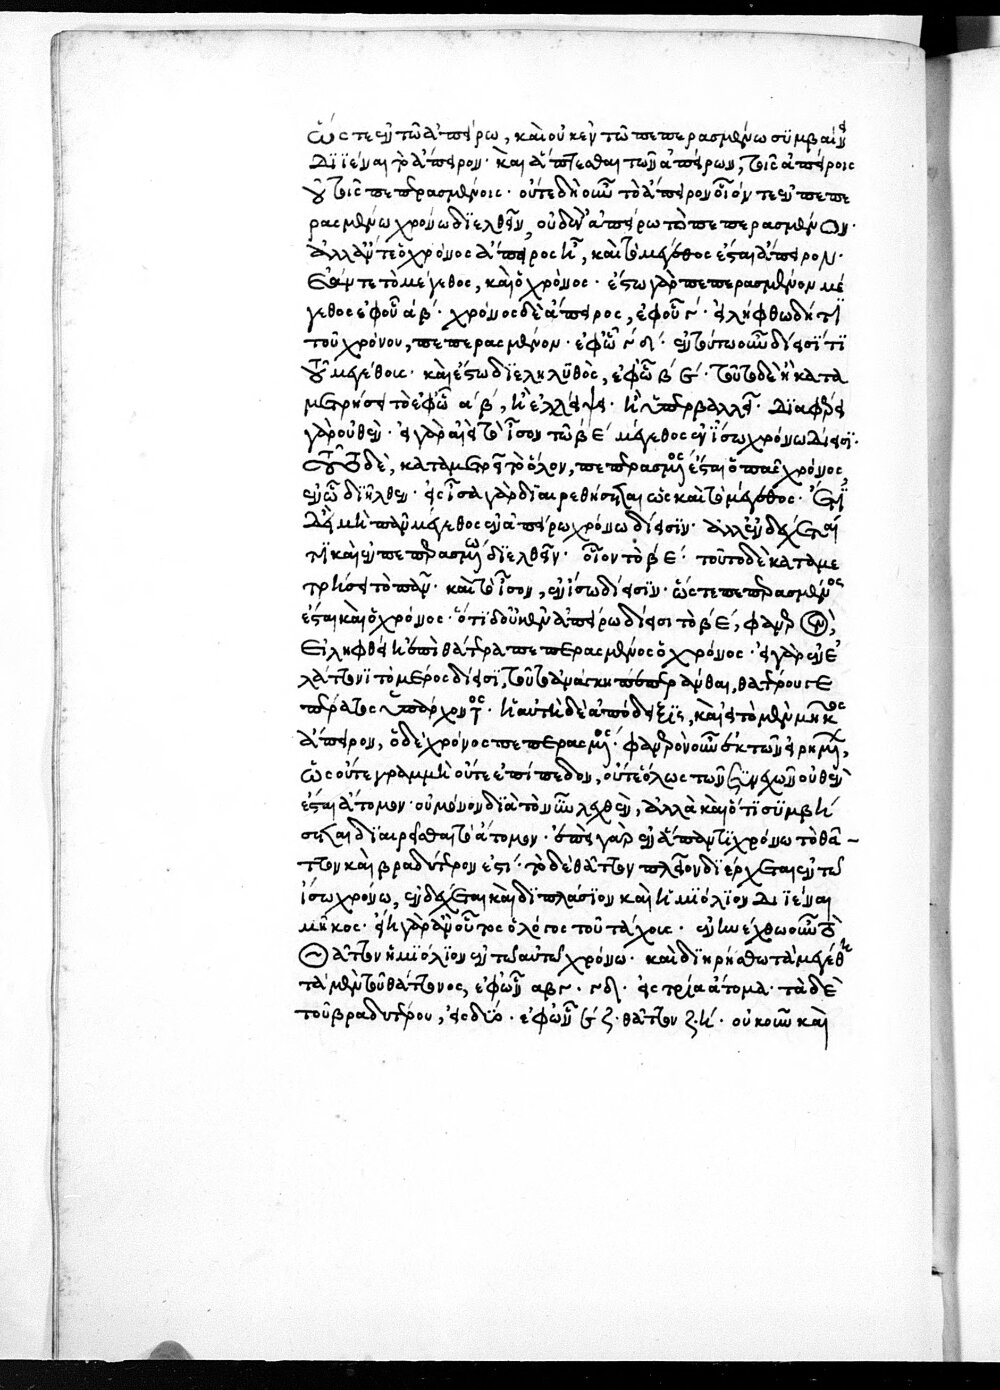 ὥστε ἐν τῶ ἀπείρω, καὶ οὐκ ἐν τῶ πεπερασμένω συμβαίνει
διϊέναι τὸ ἄπειρον· καὶ ἅπτεσθαι τῶν ἀπείρων, τοῖς ἀπείροις
οὐ τοῖς πεπερασμένοις· οὔτε δὴ οὖν τὸ ἄπειρον οἷόν τε ἐν πεπε
ρασμένω χρόνω διελθεῖν, οὐδ' ἐν ἀπείρω τὸ πεπερασμένον·
ἀλλ' ἄν τε ὁ χρόνος ἄπειρος ἦ, καὶ τὸ μέγεθος ἔσται ἄπειρον·
ἐάν τε τὸ μέγεθος, καὶ ὁ χρόνος· ἔστω γὰρ πεπερασμένον μέ
γεθος ἐφ' οὗ α β· χρόνος δὲ ἄπειρος, ἐφ' οὗ γ· εἰλήφθω δή τι
τοῦ χρόνου, πεπερασμένον· ἐφ' ὧ γ δ· ἐν τούτω οὖν δίεισί τι
τοῦ μεγέθους· καὶ ἔστω διεληλυθὸς, ἐφ' ὧ β ε· τοῦτο δὲ ἢ κατα
μετρήσει τὸ ἐφ' ὧ α β, ἢ ἐλλείψει· ἢ ὑπερβαλλεῖ· διαφέρει
γὰρ οὐθέν· εἰ γὰρ αἰεὶ τὸ ἴσον τῶ β ε μέγεθος ἐν ἴσω χρόνω δίεισι·
τοῦτο δὲ, καταμετρεῖ τὸ ὅλον, πεπερασμένος ἔσται ὁ πᾶς χρόνος
ἐν ὧ διῆλθεν· εἰς ἴσα γὰρ διαιρεθήσεται ὡς καὶ τὸ μέγεθος· ἔτι
δὲ εἰ μὴ πᾶν μέγεθος ἐν ἀπείρω χρόνω δίεισιν· ἀλλ' ἐνδέχεταί
τι καὶ ἐν πεπερασμένω διελθεῖν· οἷον τὸ β ε· τοῦτο δὲ καταμε
τρήσει τὸ πᾶν· καὶ τὸ ἴσον, ἐν ἴσω δίεισιν· ὥστε πεπερασμένος
ἔσται καὶ ὁ χρόνος· ὅτι δ' οὐκ ἐν ἀπείρω δίεισι τὸ β ε, φανερὸν,
εἰ ληφθείη ἐπὶ θάτερα πεπερασμένος ὁ χρόνος· εἰ γὰρ ἐν ἐ
λάττονι τὸ μέρος δίεισι, τοῦτο ἀνάγκη πεπεράνθαι, θατέρου γε
πέρατος ὑπάρχοντος· ἡ αὐτὴ δὲ ἀπόδειξις, καὶ εἰ τὸ μὲν μῆκος
ἄπειρον, ὁ δὲ χρόνος πεπερασμένος· φανερὸν οὖν ἐκ τῶν εἰρημένων,
ὡς οὔτε γραμμὴ οὔτε ἐπίπεδον, οὔτε ὅλως τῶν συνεχῶν οὐθὲν
ἔσται ἄτομον· οὐ μόνον διὰ τὸ νῦν λεχθὲν, ἀλλὰ καὶ ὅτι συμβή
σεται διαιρεῖσθαι τὸ ἄτομον· ἐπεὶ γὰρ ἐν ἅπαντι χρόνω τὸ θᾶτ
τον καὶ βραδύτερον ἐστί· τὸ δὲ θᾶττον πλεῖον διέρχεται ἐν τῶ
ἴσω χρόνω, ἐνδέχεται καὶ διπλάσιον καὶ ἡμιόλιον διϊέναι
μῆκος· εἴη γὰρ ἂν οὗτος ὁ λόγος τοῦ τάχους· ἐνηνέχθω οὖν τὸ
θᾶττον ἡμιόλιον ἐν τῶ αὐτῶ χρόνω· καὶ διηρήσθω τὰ μεγέθη
τὰ μὲν τοῦ θάττονος, ἐφ' ὧν αβ βγ· γδ· εἰς τρία ἄτομα· τὰ δὲ
τοῦ βραδυτέρου, εἰς δύο· ἐφ' ὧν ε ζ· θᾶττον ζ· η· οὐκοῦν καὶ